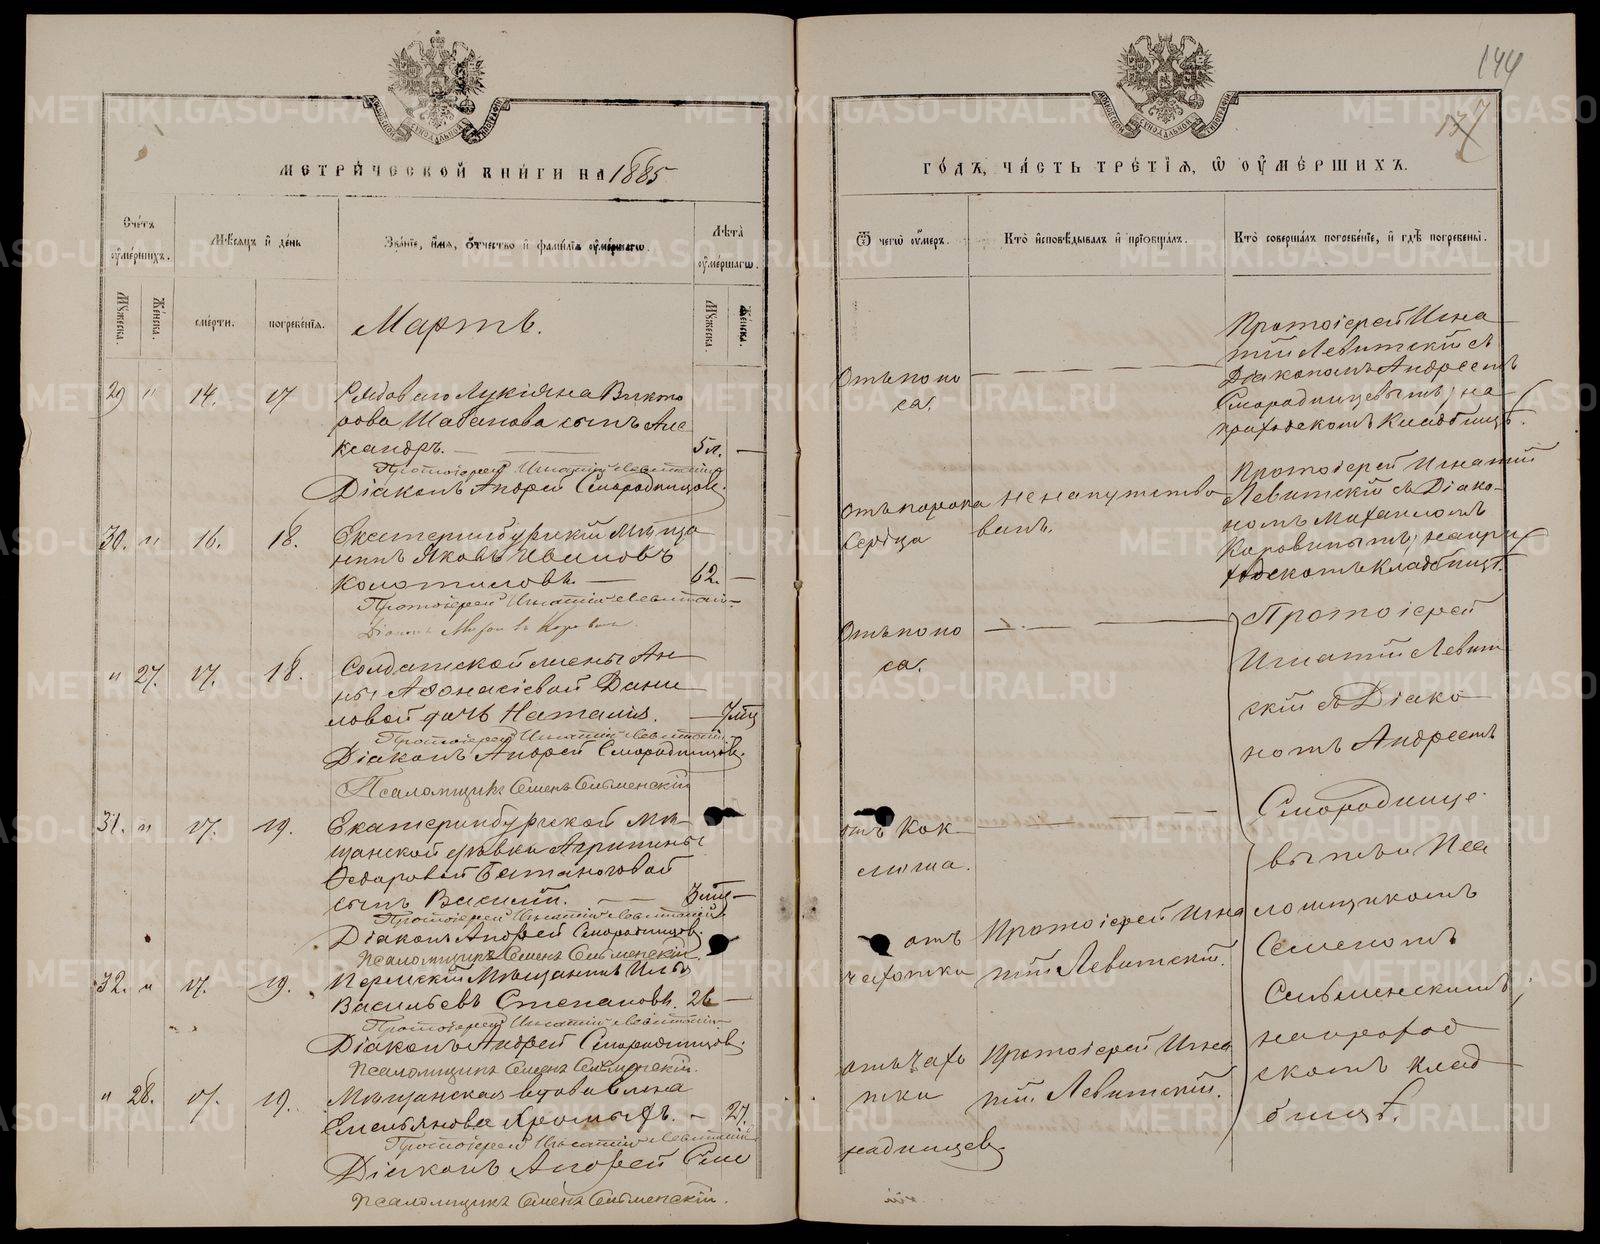 144
137
МЕТРИ́ЧЕСКОЙ КНИ́ГИ НА 1885
Сче́тъ оу҆ме́ршихъ.
Мѣ́сяцъ и҆ де́нь
Зва́нїе, и҆́мя, о҆́тчество и҆ фами́лїя оу҆ме́ршагѡ.
Лѣ́та оу҆ме́ршагѡ.
Му́жеска.
Же́нска.
сме́рти.
погребе́нїя.
Мартъ.
Му́жеска.
Же́нска.
29 " 14. 17
Рядоваго Лукіяна Викто
рова Шабанова сынъ Але
ксандръ. — 5 л. —
Протоіерей Игнатій Левитскій
Діаконъ Андрей Смородинцовъ.
30. " 16. 18.
Екатеринбургскій Мѣща
нинъ Яковъ Ивановъ
Колотиловъ. — 62. —
Протоіерей Игнатій Левитскій
Діаконъ Михаилъ Коровинъ.
" 27. 17. 18.
Солдатской жены Ан
ны Аѳонасіевой Дани
ловой дочь Наталія. — 7 мц
Протоіерей Игнатій Левитскій
Діаконъ Андрей Смородинцовъ.
Псаломщикъ Семенъ Сельменскій
31. " 17. 19.
Екатеринбургской Мѣ
щанской дѣвки Агриппины
Ѳедоровой
сынъ Василій. — 3 мц —
Протоіерей Игнатій Левитскій
Діаконъ Андрей Смородинцовъ.
Псаломщикъ Семенъ Сельменскій
32. " 17. 19.
Пермскій Мѣщанинъ Илья
Васильевъ Степановъ. 26 —
Протоіерей Игнатій Левитскій
Діаконъ Андрей Смородинцовъ.
Псаломщикъ Семенъ Сельменскій.
" 28. 17. 19.
Мѣщанская вдова Елена
Емельянова — 27.
Протоіерей Игнатій Левитскій
Діаконъ Андрей Смо
Псаломщикъ Семенъ Сельменскій.
ГО́ДЪ, ЧА́СТЬ ТРЕ́ТЇЯ, Ѡ҆ ОУ҆МЕ́РШИХЪ.
Ѿ чегѡ̀ оу҆́меръ.
Кто̀ и҆сповѣ́дывалъ и҆ прїѡбща́лъ.
Кто̀ соверша́лъ погребе́нїе, и҆ гдѣ̀ погребены̀.
Отъ поно
са.
Протоіерей Игна
тій Левитскій съ
Діакономъ Андреемъ
Смородинцевымъ, на
приходскомъ Кладбищѣ.
Отъ порока
сердца
Не напутство
ванъ.
Протоіерей Игнатій
Левитскій съ Діако-
номъ Михаиломъ
Коровинымъ, на при
ходскомъ кладбищѣ.
Отъ поно
са.
Протоіерей
Игнатій Левит
скій съ Діако
номъ Андреемъ
Смородинце
вымъ и Пса
ломщикомъ
Семеномъ
Сельменскимъ,
на приход
скомъ клад
бищѣ.
отъ Кок
люша.
отъ
чахотки
Протоіерей Игна
тій Левитскій.
отъ Чахо
тки
Протоіерей Игна
тій Левитскій.
родинцевъ.
METRIKI.GASO-URAL.RU